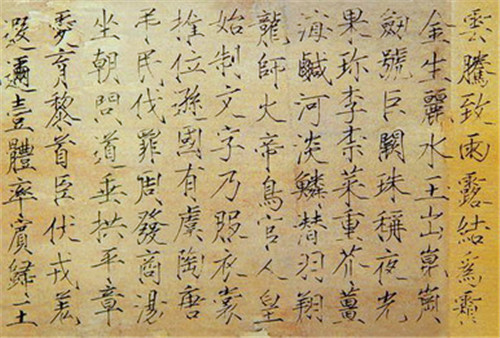 雲騰致雨露結爲霜
金生麗水玉出崑崗
劒號巨闕珠稱夜光
果珍李柰菜重芥薑
海鹹河淡鱗潛羽翔
龍師火帝鳥官人皇
始制文字乃服衣裳
推位遜國有虞陶唐
弔民伐罪周發商湯
坐朝問道垂拱平章
愛育黎首臣伏戎羌
遐邇壹體率賓歸王